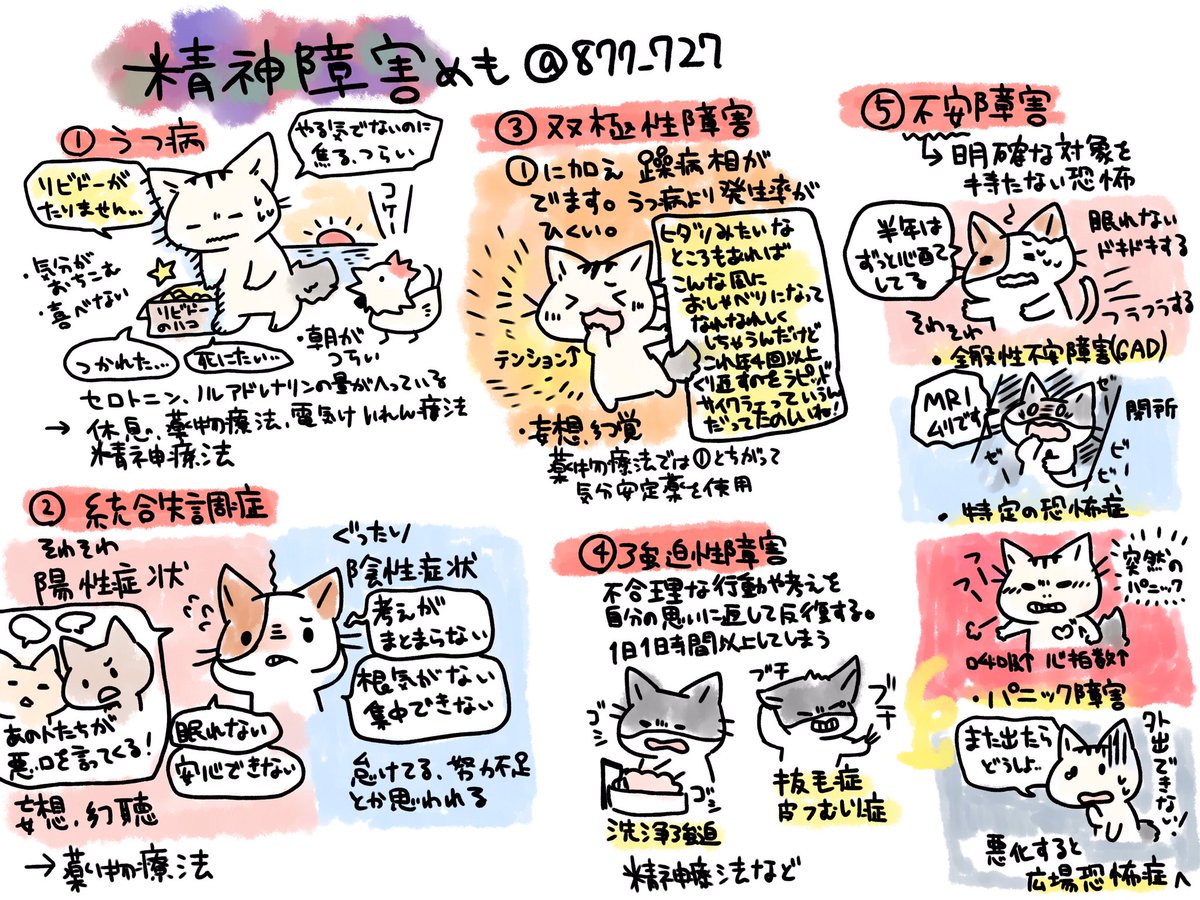 精神障害めも @877_727
① うつ病
やる気でないのに
焦る、つらい
リビドーが
たりません…
コケ
・気分が
おちこむ
・喜べない
リビドー
のハコ
つかれた…
死にたい…
・朝が
つらい
セロトニン、ノルアドレナリンの量がへっている
→ 休息、薬物療法、電気けいれん療法
精神療法
② 統合失調症
そわそわ
陽性症状
あの人たちが
悪口を言ってくる!
眠れない
安心できない
妄想、幻聴
→ 薬物療法
ぐったり
陰性症状
考えが
まとまらない
根気がない
集中できない
怠けてる、努力不足
とか思われる
③ 双極性障害
①に加え 躁病相が
でます。うつ病より発生率が
ひくい。
ヒダリみたいな
ところもあれば
こんな風に
おしゃべりになって
なれなれしく
しちゃうんだけど
これ年4回以上
くり返すのをラピッド
サイクラーっていうん
だってたのしいね!
テンション↑
・妄想、幻覚
薬物療法では①とちがって
気分安定薬を使用
④ 強迫性障害
不合理な行動や考えを
自分の思いに返して反復する。
1日1時間以上してしまう
ゴシ
ゴシ
洗浄強迫
ブチ
ブチ
抜毛症
皮つむじり症
精神療法など
⑤ 不安障害
↳ 明確な対象を
持たない恐怖
半年は
ずっと心配
してる
眠れない
ドキドキする
フラフラする
そわそわ
・全般性不安障害(GAD)
MRI
ムリです
閉所
ゼー
ゼー
ビー
ビー
・特定の恐怖症
フーフー
突然の
パニック
呼吸↑ 心拍数↑
・パニック障害
また出たら
どうしよ..
外出できない!
悪化すると
広場恐怖症へ